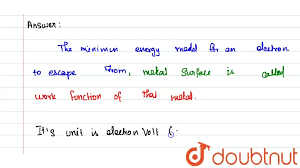 Answer:
The minimum energy needed for an electron
to escape from, metal surface is called
work function of that metal.
It's unit is electron Volt (
doubtnut